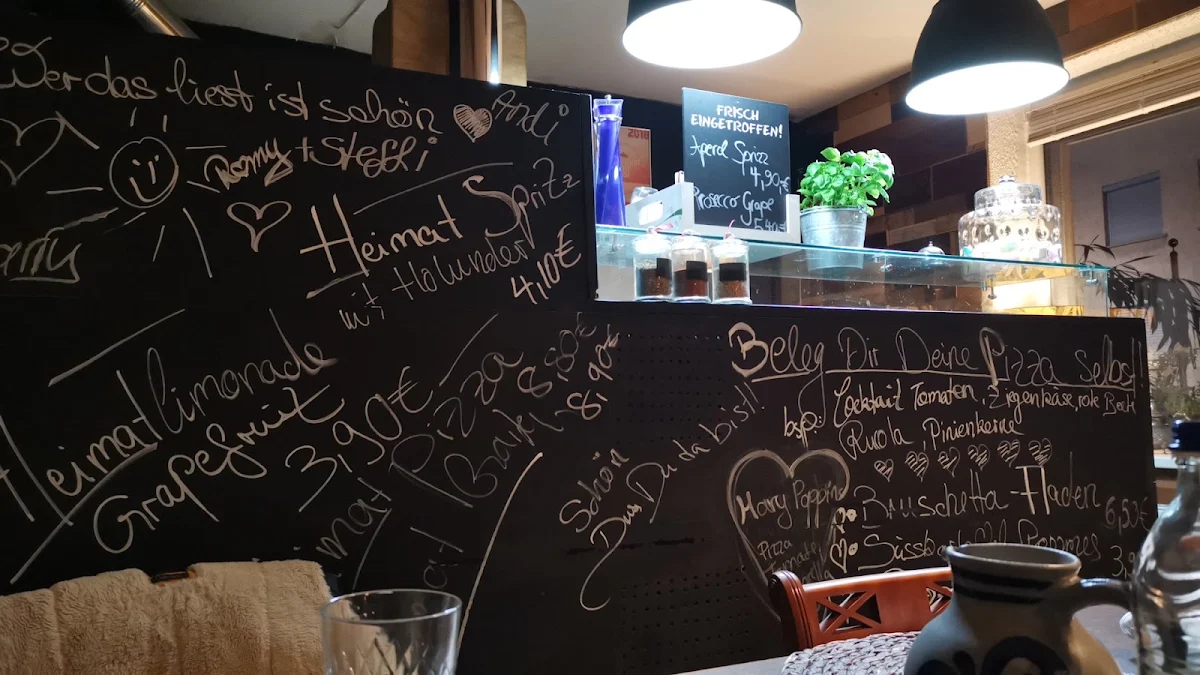 Wer das liest ist schön
Andi
Romy + Steffi
Heimat Spritz
mit Holunder
4,10€
Heimatlimonade
Grapefruit
3,90€
Pizza
8,80€
8,90€
Schön
Dass Du da bist!
FRISCH
EINGETROFFEN!
Aperol Sprizz
4,90€
Prosecco Grape
5,40€
Beleg Dir Deine Pizza Selbst
bsp: Cocktail Tomaten, Ziegenkäse, rote Beete
Rucola, Pinienkerne
Bruschetta-Fladen 6,50€
Süsskartoffel Pommes 3,
Mary Poppins
Pizza
2018